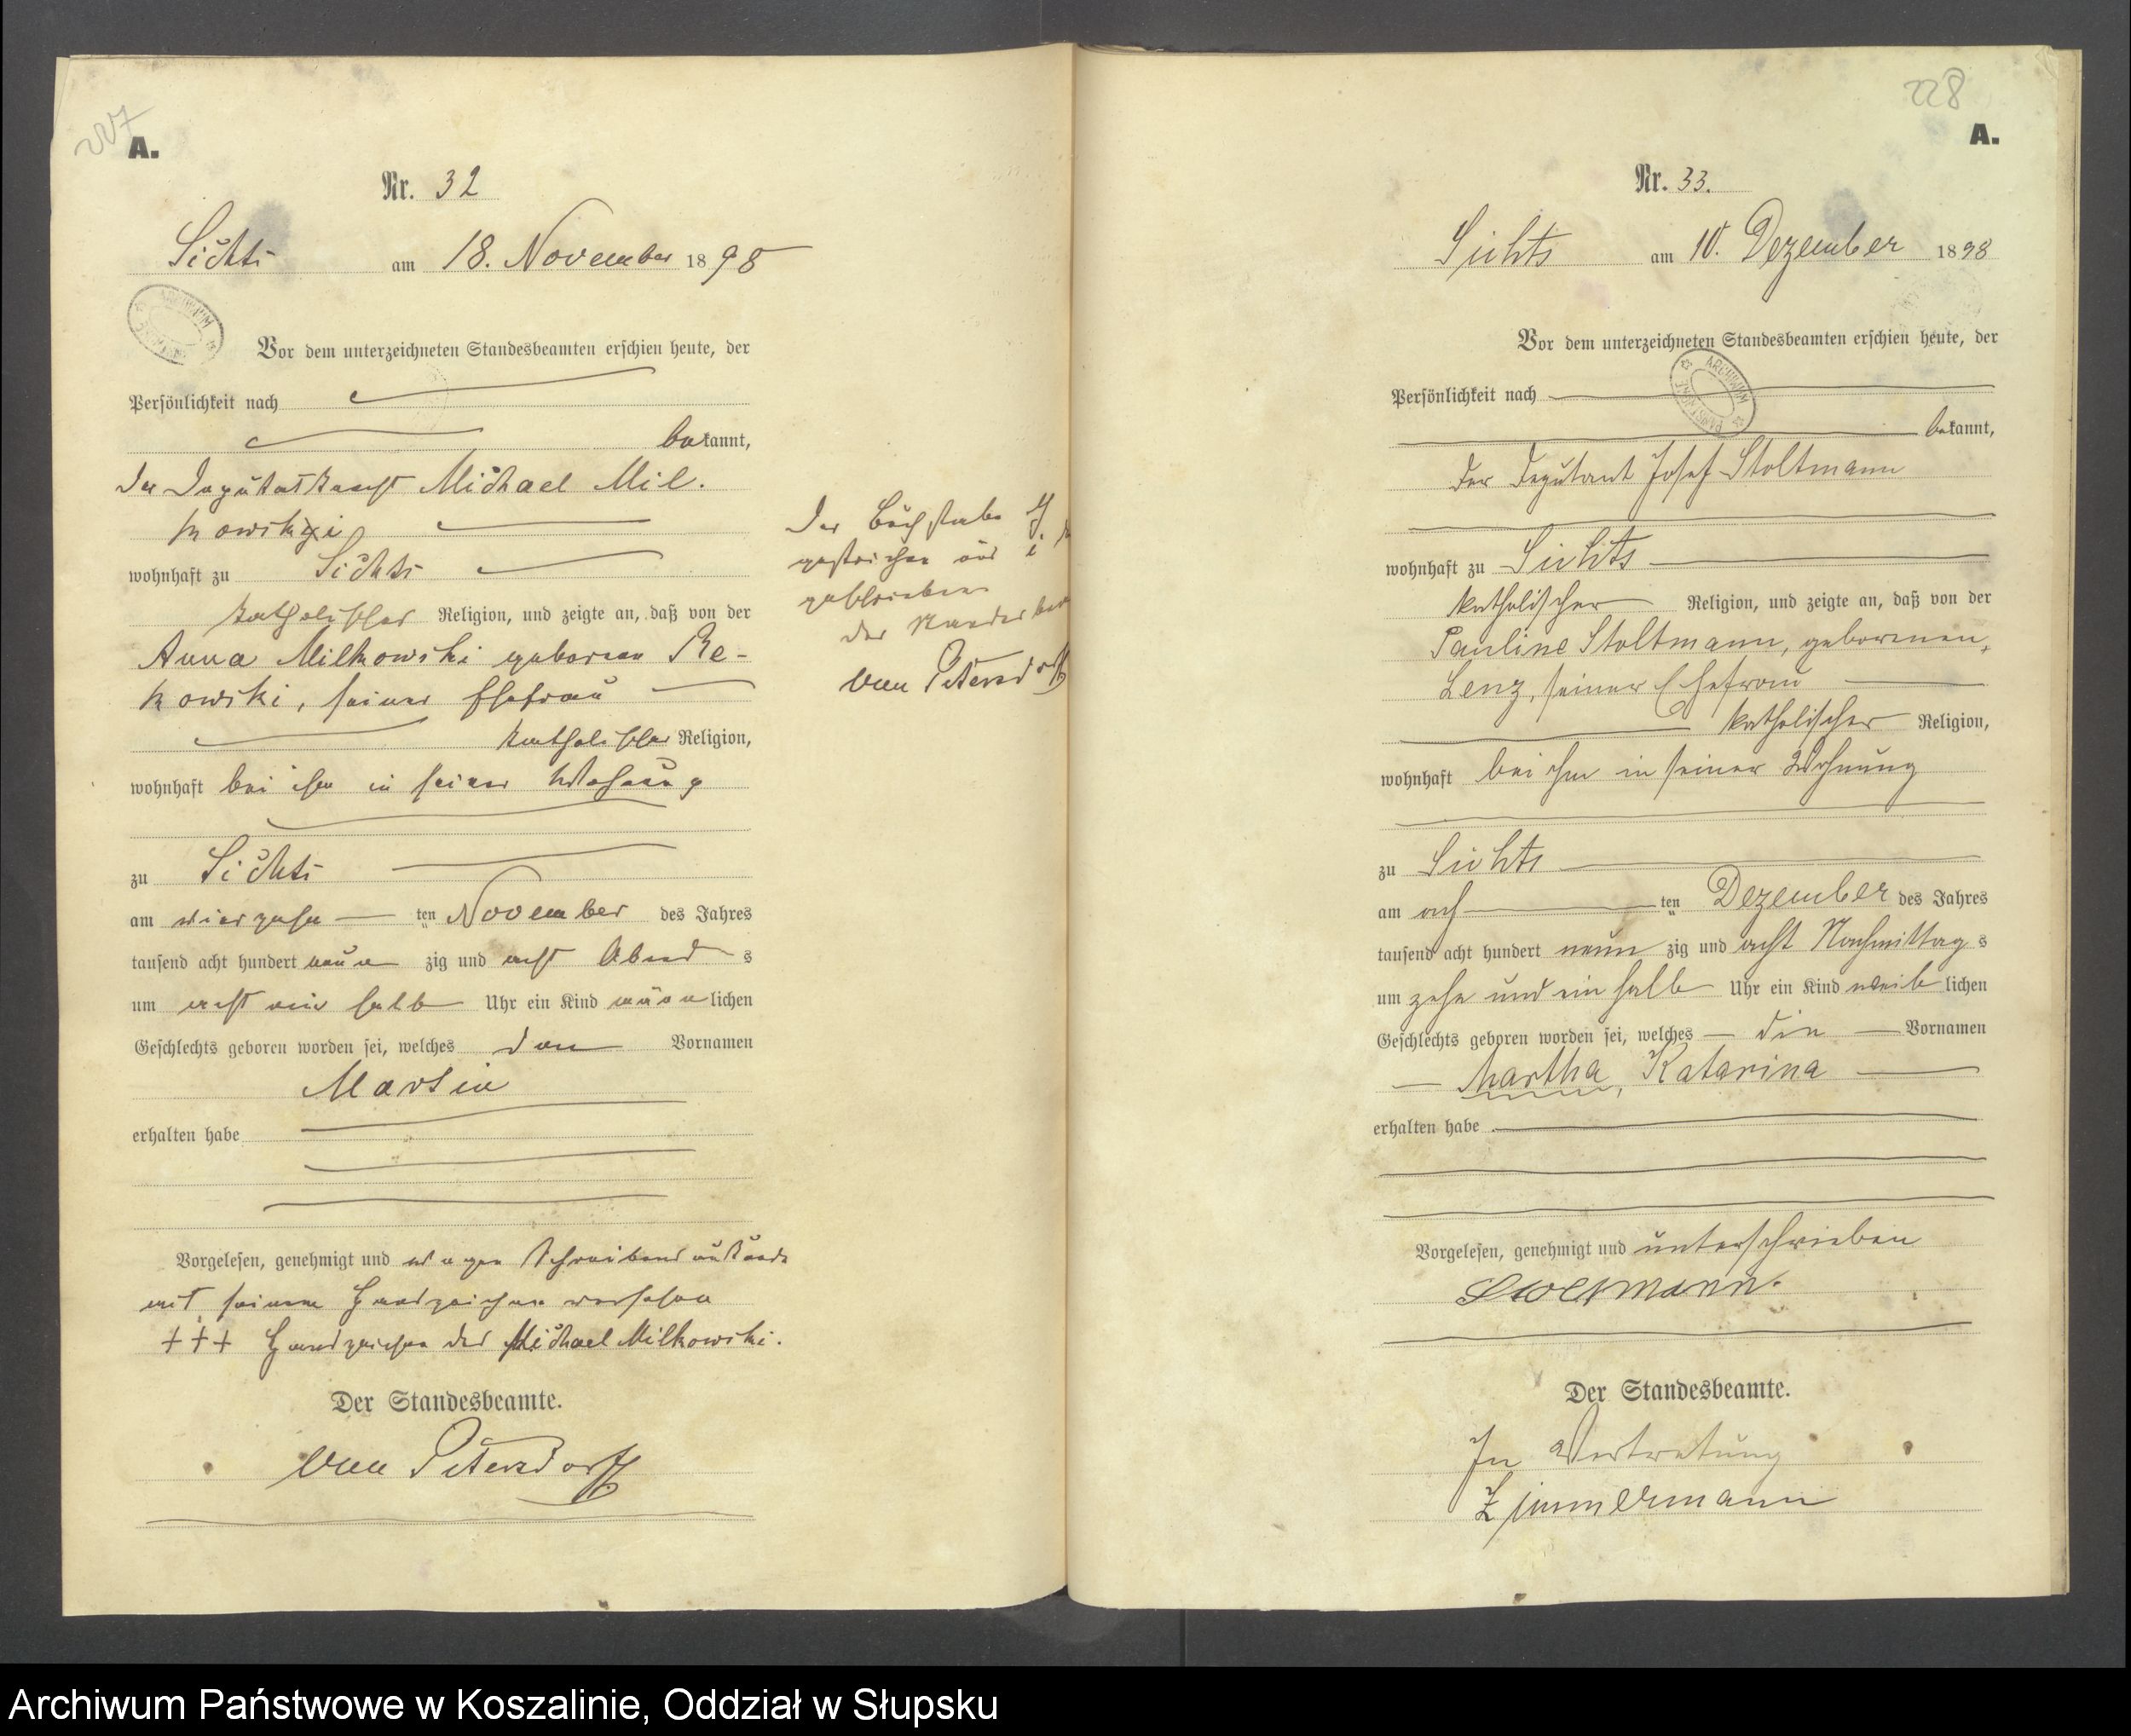 227
A.
Nr. 32
Sichts am 18. November 1898
Vor dem unterzeichneten Standesbeamten erschien heute, der
Persönlichkeit nach
bekannt,
der Deputatknecht Michael Mil-
kowskyi
wohnhaft zu Sichts
katholischer Religion, und zeigte an, daß von der
Anna Milkowski geborenen Re-
kowski, seiner Ehefrau
katholischer Religion,
wohnhaft bei ihm in seiner Wohnung
zu Sichts
am vierzehn ten November des Jahres
tausend acht hundert neun zig und acht Abend s
um acht ein halb Uhr ein Kind männ lichen
Geschlechts geboren worden sei, welches den Vornamen
Martin
erhalten habe
Vorgelesen, genehmigt und wegen Schreibensunkunde
mit seinem Handzeichen versehen
+++ Handzeichen des Michael Milkowski.
Der Standesbeamte.
von Petersdorff
Der Buchstabe y
gestrichen und i
geschrieben
Der Standesbea
von Petersdorff
228
A.
Nr. 33.
Sichts am 10. Dezember 1898
Vor dem unterzeichneten Standesbeamten erschien heute, der
Persönlichkeit nach
bekannt,
der Deputant Josef Stoltmann
wohnhaft zu Sichts
katholischer Religion, und zeigte an, daß von der
Pauline Stoltmann, geborenen
Lenz, seiner Ehefrau
katholischer Religion,
wohnhaft bei ihm in seiner Wohnung
zu Sichts
am ach ten Dezember des Jahres
tausend acht hundert neun zig und acht Nachmittag s
um zehn und ein halb Uhr ein Kind weib lichen
Geschlechts geboren worden sei, welches die Vornamen
Martha, Katarina
erhalten habe
Vorgelesen, genehmigt und unterschrieben
Stoltmann.
Der Standesbeamte.
In Vertretung
Zimmermann
Archiwum Państwowe w Koszalinie, Oddział w Słupsku